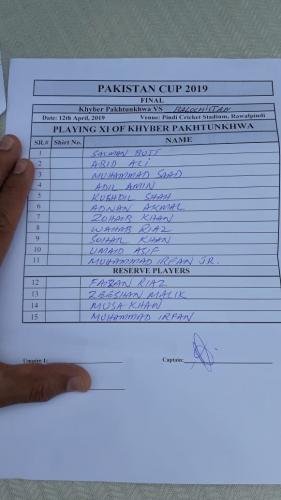 PAKISTAN CUP 2019
FINAL
Khyber Pakhtunkhwa VS BALOCHISTAN
Date: 12th April, 2019 Venue: Pindi Cricket Stadium, Rawalpindi
PLAYING XI OF KHYBER PAKHTUNKHWA
SR.# Shirt No. NAME
1 SALMAN BUTT
2 ABID ALI
3 MUHAMMAD SAAD
4 ADIL AMIN
5 KUSHDIL SHAH
6 ADNAN AKMAL
7 ZOHAIB KHAN
8 WAHAB RIAZ
9 SOHAIL KHAN
10 UMAID ASIF
11 MUHAMMAD IRFAN JR.
RESERVE PLAYERS
12 FAIZAN RIAZ
13 ZEESHAN MALIK
14 MUSA KHAN
15 MUHAMMAD IRFAN
Umpire 1: Captain: